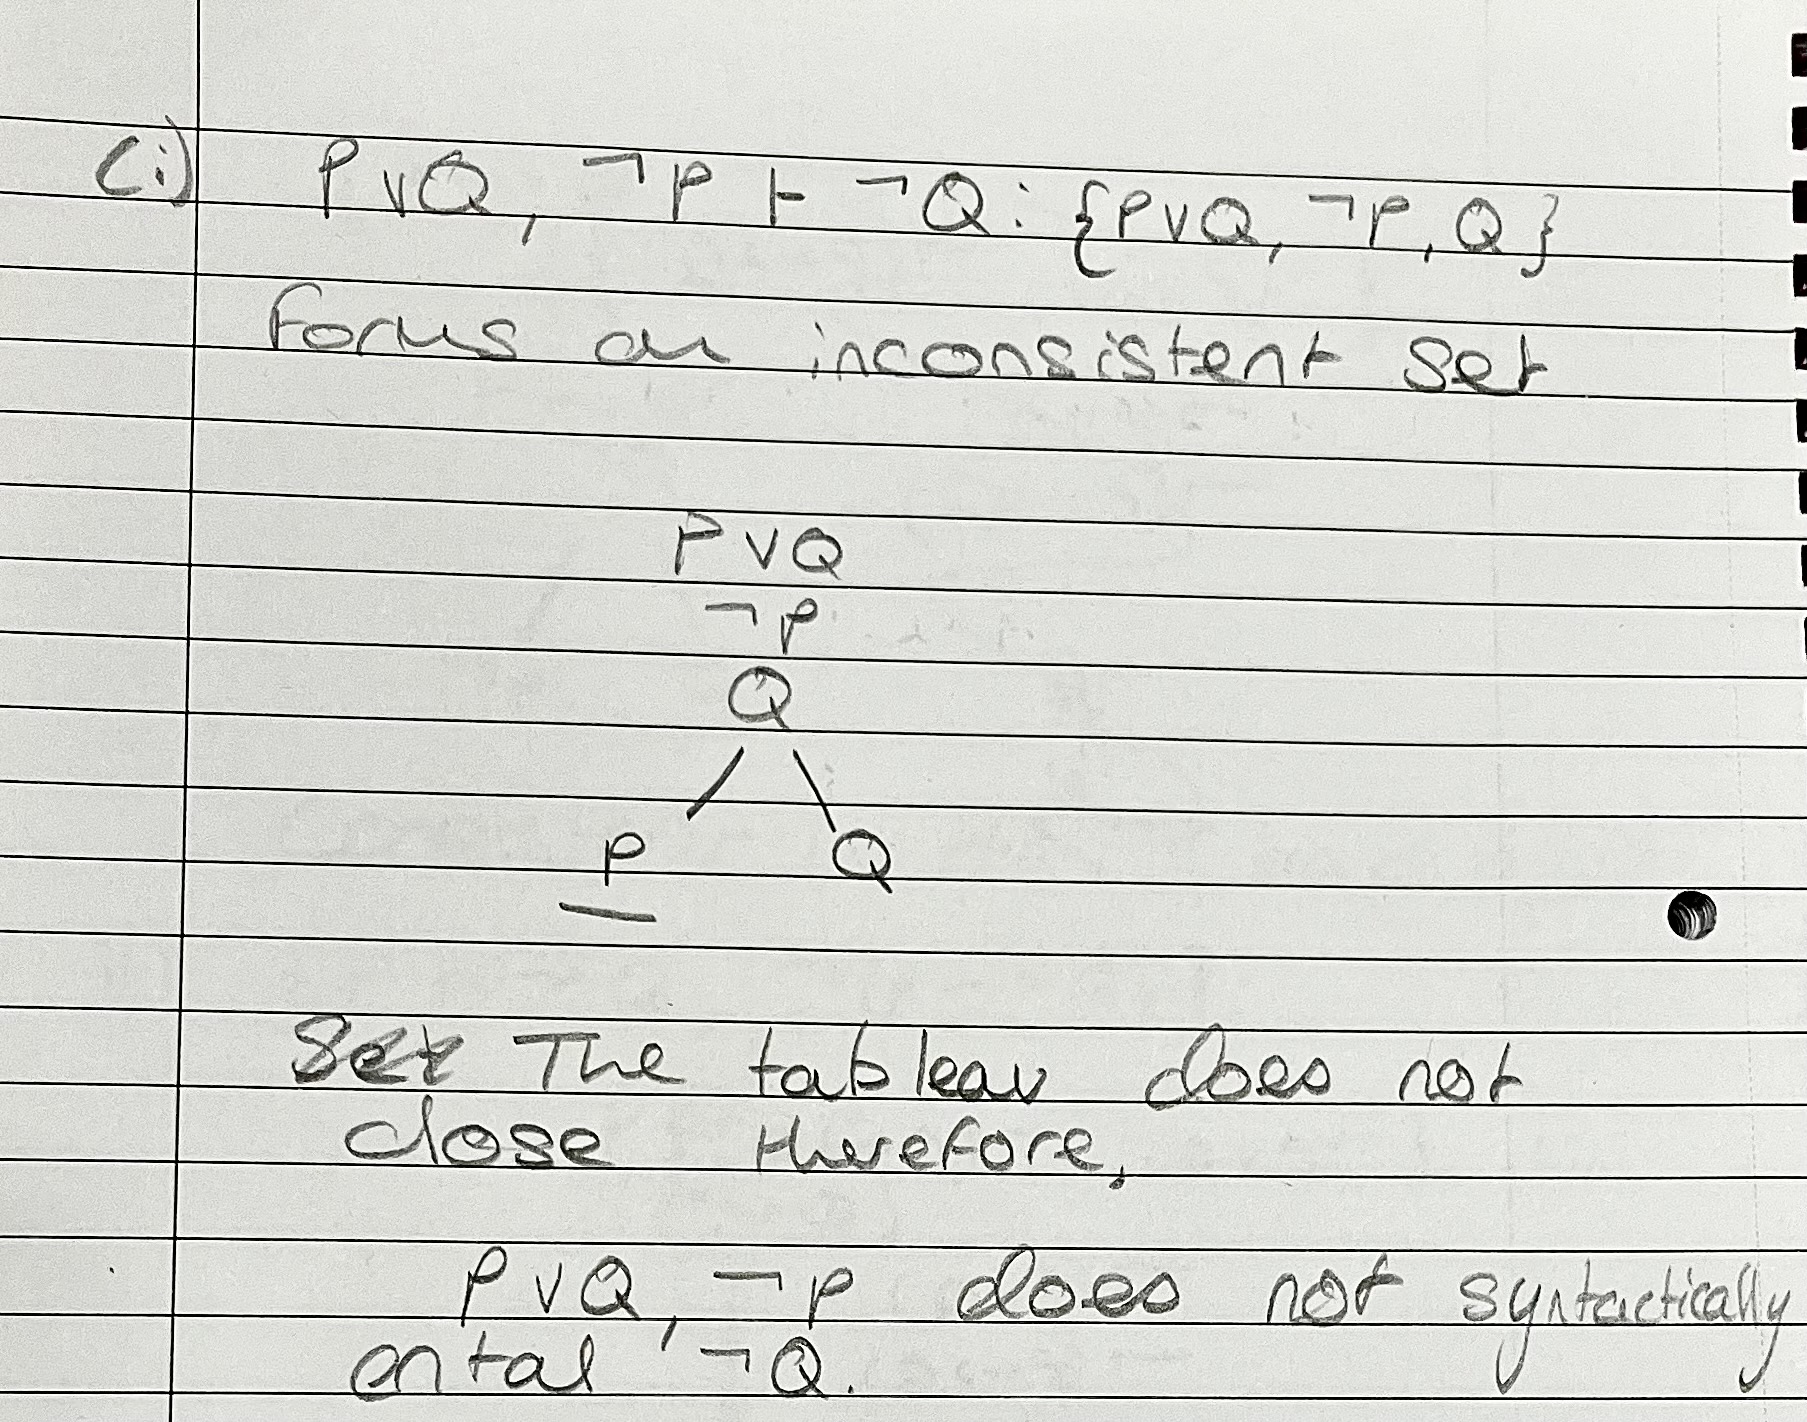 (i) P∨Q, ¬P ⊢ ¬Q: {P∨Q, ¬P, Q}
forms an inconsistent set
P∨Q
¬P
Q
P Q
Set The tableau does not
close therefore,
P∨Q, ¬P does not syntactically
entail ¬Q.